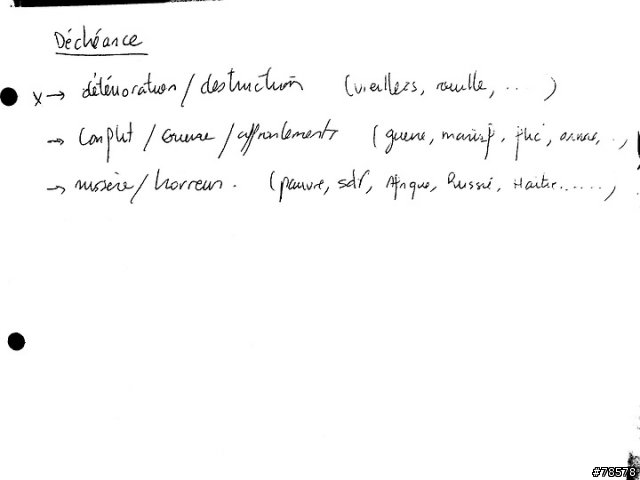 Déchéance
x → détérioration / destruction (vieillesse, rouille, ....)
→ Conflit / Guerre / affrontements (guerre, manif, flic, armes, ..,
→ misère / horreur. (pauvre, sdf, Afrique, Russie, Haïti......,
#78578